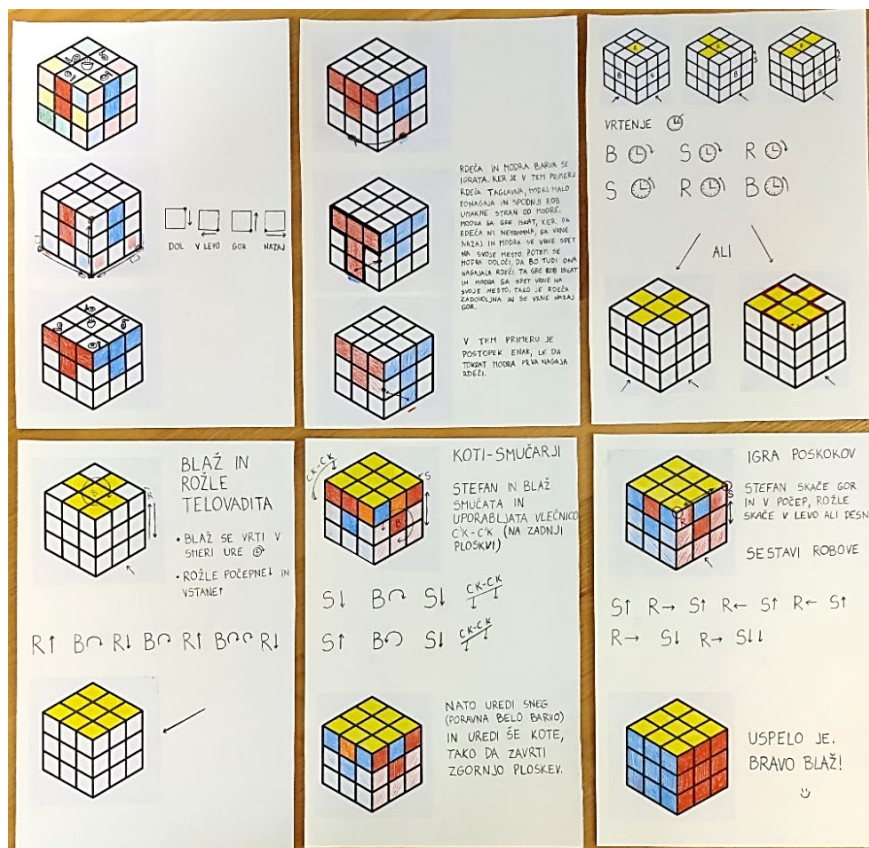 DOL V LEVO GOR NAZAJ
RDEČA IN MODRA BARVA SE
IGRATA. KER JE V TEM PRIMERU
RDEČA TAGLAVNA, MODRI MALO
PONAGAJA IN SPODNJI ROB
UMAKNE STRAN OD MODRE.
MODRA GA GRE ISKAT, KER PA
RDEČA NI NESRAMNA, GA VRNE
NAZAJ IN MODRA SE VRNE SPET
NA SVOJE MESTO. POTEM SE
MODRA ODLOČI, DA BO TUDI ONA
NAGAJALA RDEČI. TA GRE ROB ISKAT
IN MODRA GA SPET VRNE NA
SVOJE MESTO. TAKO JE RDEČA
ZADOVOLJNA IN SE VRNE NAZAJ
GOR.
V TEM PRIMERU JE
POSTOPEK ENAK, LE DA
TOKRAT MODRA PRVA NAGAJA
RDEČI.
VRTENJE
B S R
S R B
ALI
BLAŽ IN
ROŽLE
TELOVADITA
• BLAŽ SE VRTI V
SMERI URE
• ROŽLE POČEPNE↓ IN
VSTANE↑
R↑ B R↓ B R↑ B R↓
KOTI-SMUČARJI
STEFAN IN BLAŽ
SMUČATA IN
UPORABLJATA VLEČNICO
CK-CK (NA ZADNJI
PLOSKVI)
S↓ B S↓ CK-CK
S↑ B S↓ CK-CK
NATO UREDI SNEG
(PORAVNA BELO BARVO)
IN UREDI ŠE KOTE,
TAKO DA ZAVRTI
ZGORNJO PLOSKEV.
IGRA POSKOKOV
STEFAN SKAČE GOR
IN V POČEP, ROŽLE
SKAČE V LEVO ALI DESN
SESTAVI ROBOVE
S↑ R→ S↑ R← S↑ R← S↑
R→ S↓ R→ S↓↓
USPELO JE.
BRAVO BLAŽ!